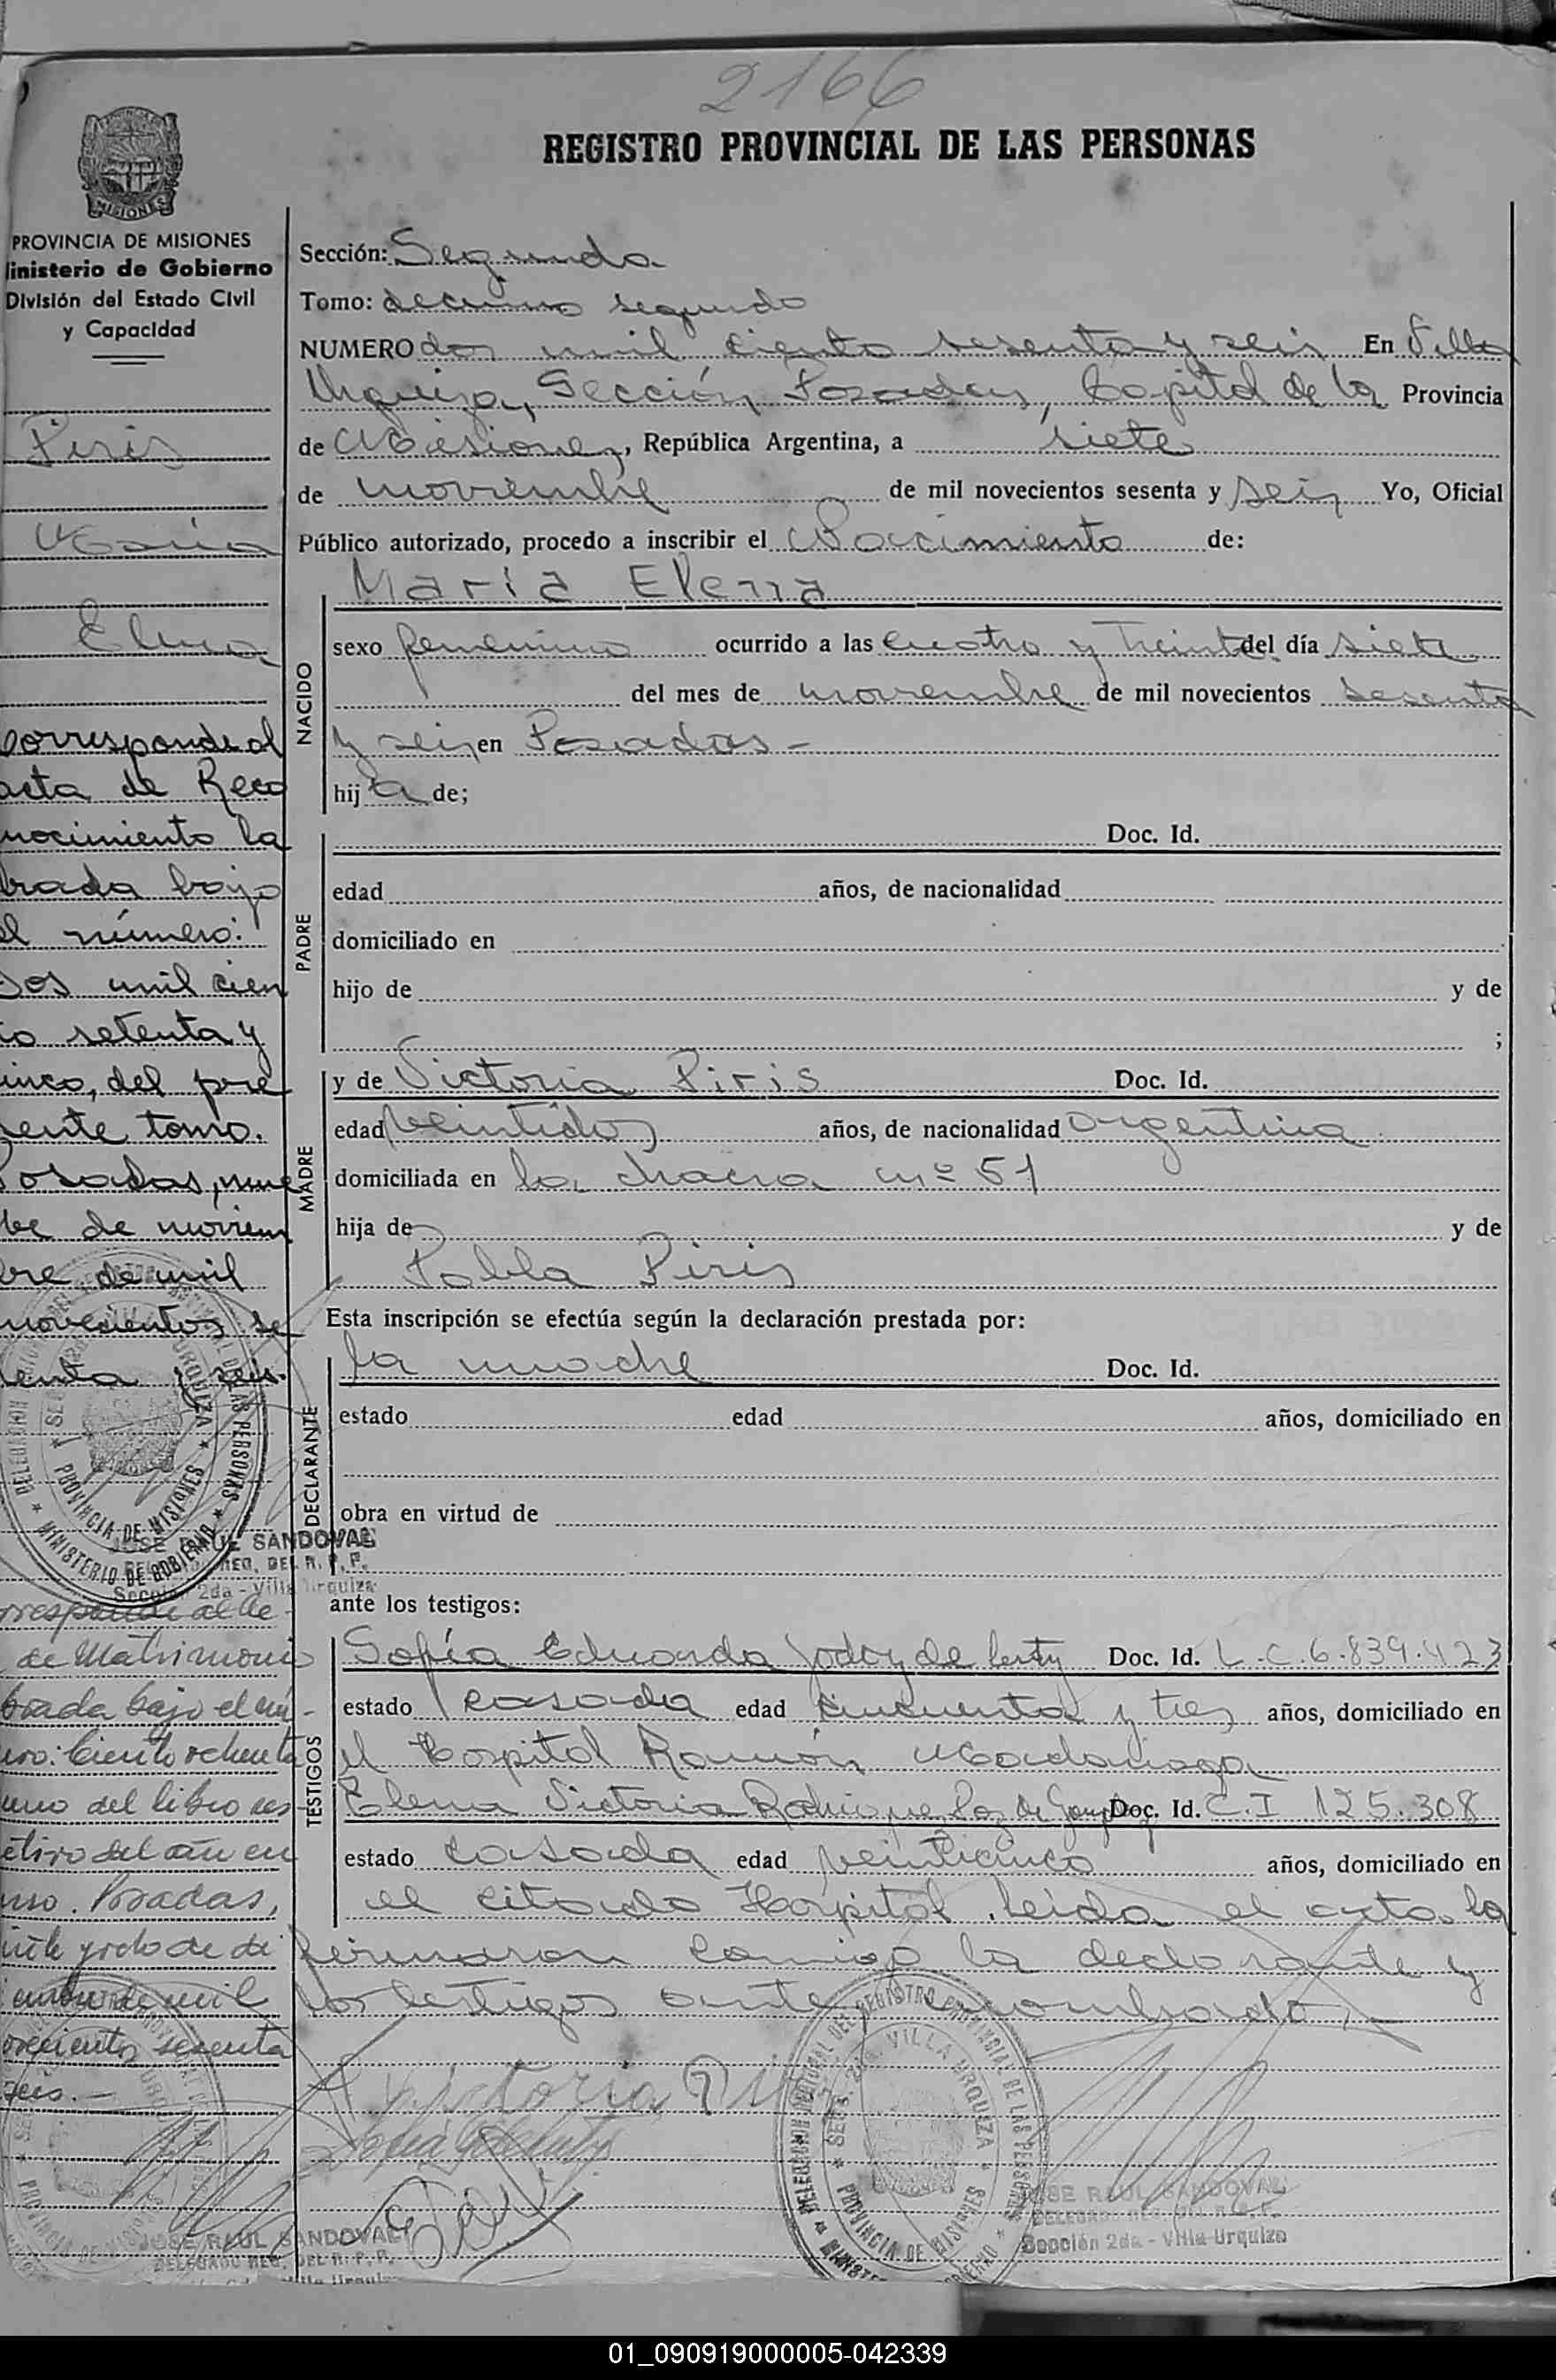 2166
REGISTRO PROVINCIAL DE LAS PERSONAS
MISIONES
PROVINCIA DE MISIONES
inisterio de Gobierno
División del Estado Civil
y Capacidad
Piris
María
Elena
Corresponde al
acta de Reco
nocimiento la
brada bajo
el número:
Dos mil cien
to setenta y
cinco, del pre
sente tomo.
Posadas, nue
ve de noviem
bre de mil
novecientos se
senta y seis.
JOSE RAUL SANDOVAL
DELEGADO REG. DEL R. P. P.
Sección 2da - Villa Urquiza
rresponde al de
de Matrimonio
brada bajo el nú-
ero: Ciento ochenta
uno del libro res-
etivo del año en
rso. Posadas,
de di
ciembre de mil
ovecientos sesenta
seis.-
JOSE RAUL SANDOVAL
DELEGADO REG. DEL R. P. P.
Sección: Segunda
Tomo: decimo segundo
NUMERO dos mil ciento sesenta y seis En Villa
Urquiza, Sección, Posadas, Capital de la Provincia
de Misiones, República Argentina, a siete
de noviembre de mil novecientos sesenta y seis Yo, Oficial
Público autorizado, procedo a inscribir el Nacimiento de:
NACIDO
María Elena
sexo femenino ocurrido a las cuatro y treinta del día siete
del mes de noviembre de mil novecientos sesenta
y seis en Posadas -
hija de;
PADRE
Doc. Id.
edad años, de nacionalidad
domiciliado en
hijo de y de
;
MADRE
y de Victoria Piris Doc. Id.
edad veintidos años, de nacionalidad argentina
domiciliada en la chacra nº 51
hija de y de
Pabla Piris
Esta inscripción se efectúa según la declaración prestada por:
DECLARANTE
la madre Doc. Id.
estado edad años, domiciliado en
obra en virtud de
ante los testigos:
TESTIGOS
Sofía Eduarda Godoy de Doc. Id. L.C. 6.839.423
estado casada edad cincuenta y tres años, domiciliado en
el Hospital Ramón Madariaga
Elena Victoria Doc. Id. C.I 125.308
estado casada edad veinticinco años, domiciliado en
el citado Hospital. Leida el acta la
firmaron conmigo la declarante y
los testigos ante nombrados,-
Victoria
DELEGACION NOTURAL DEL REGISTRO PROVINCIAL DE LAS PERSONAS
SECC. 2da. VILLA URQUIZA
PROVINCIA DE MISIONES
JOSE RAUL SANDOVAL
DELEGADO REG. DEL R. P. P.
Sección 2da - Villa Urquiza
01_090919000005-042339